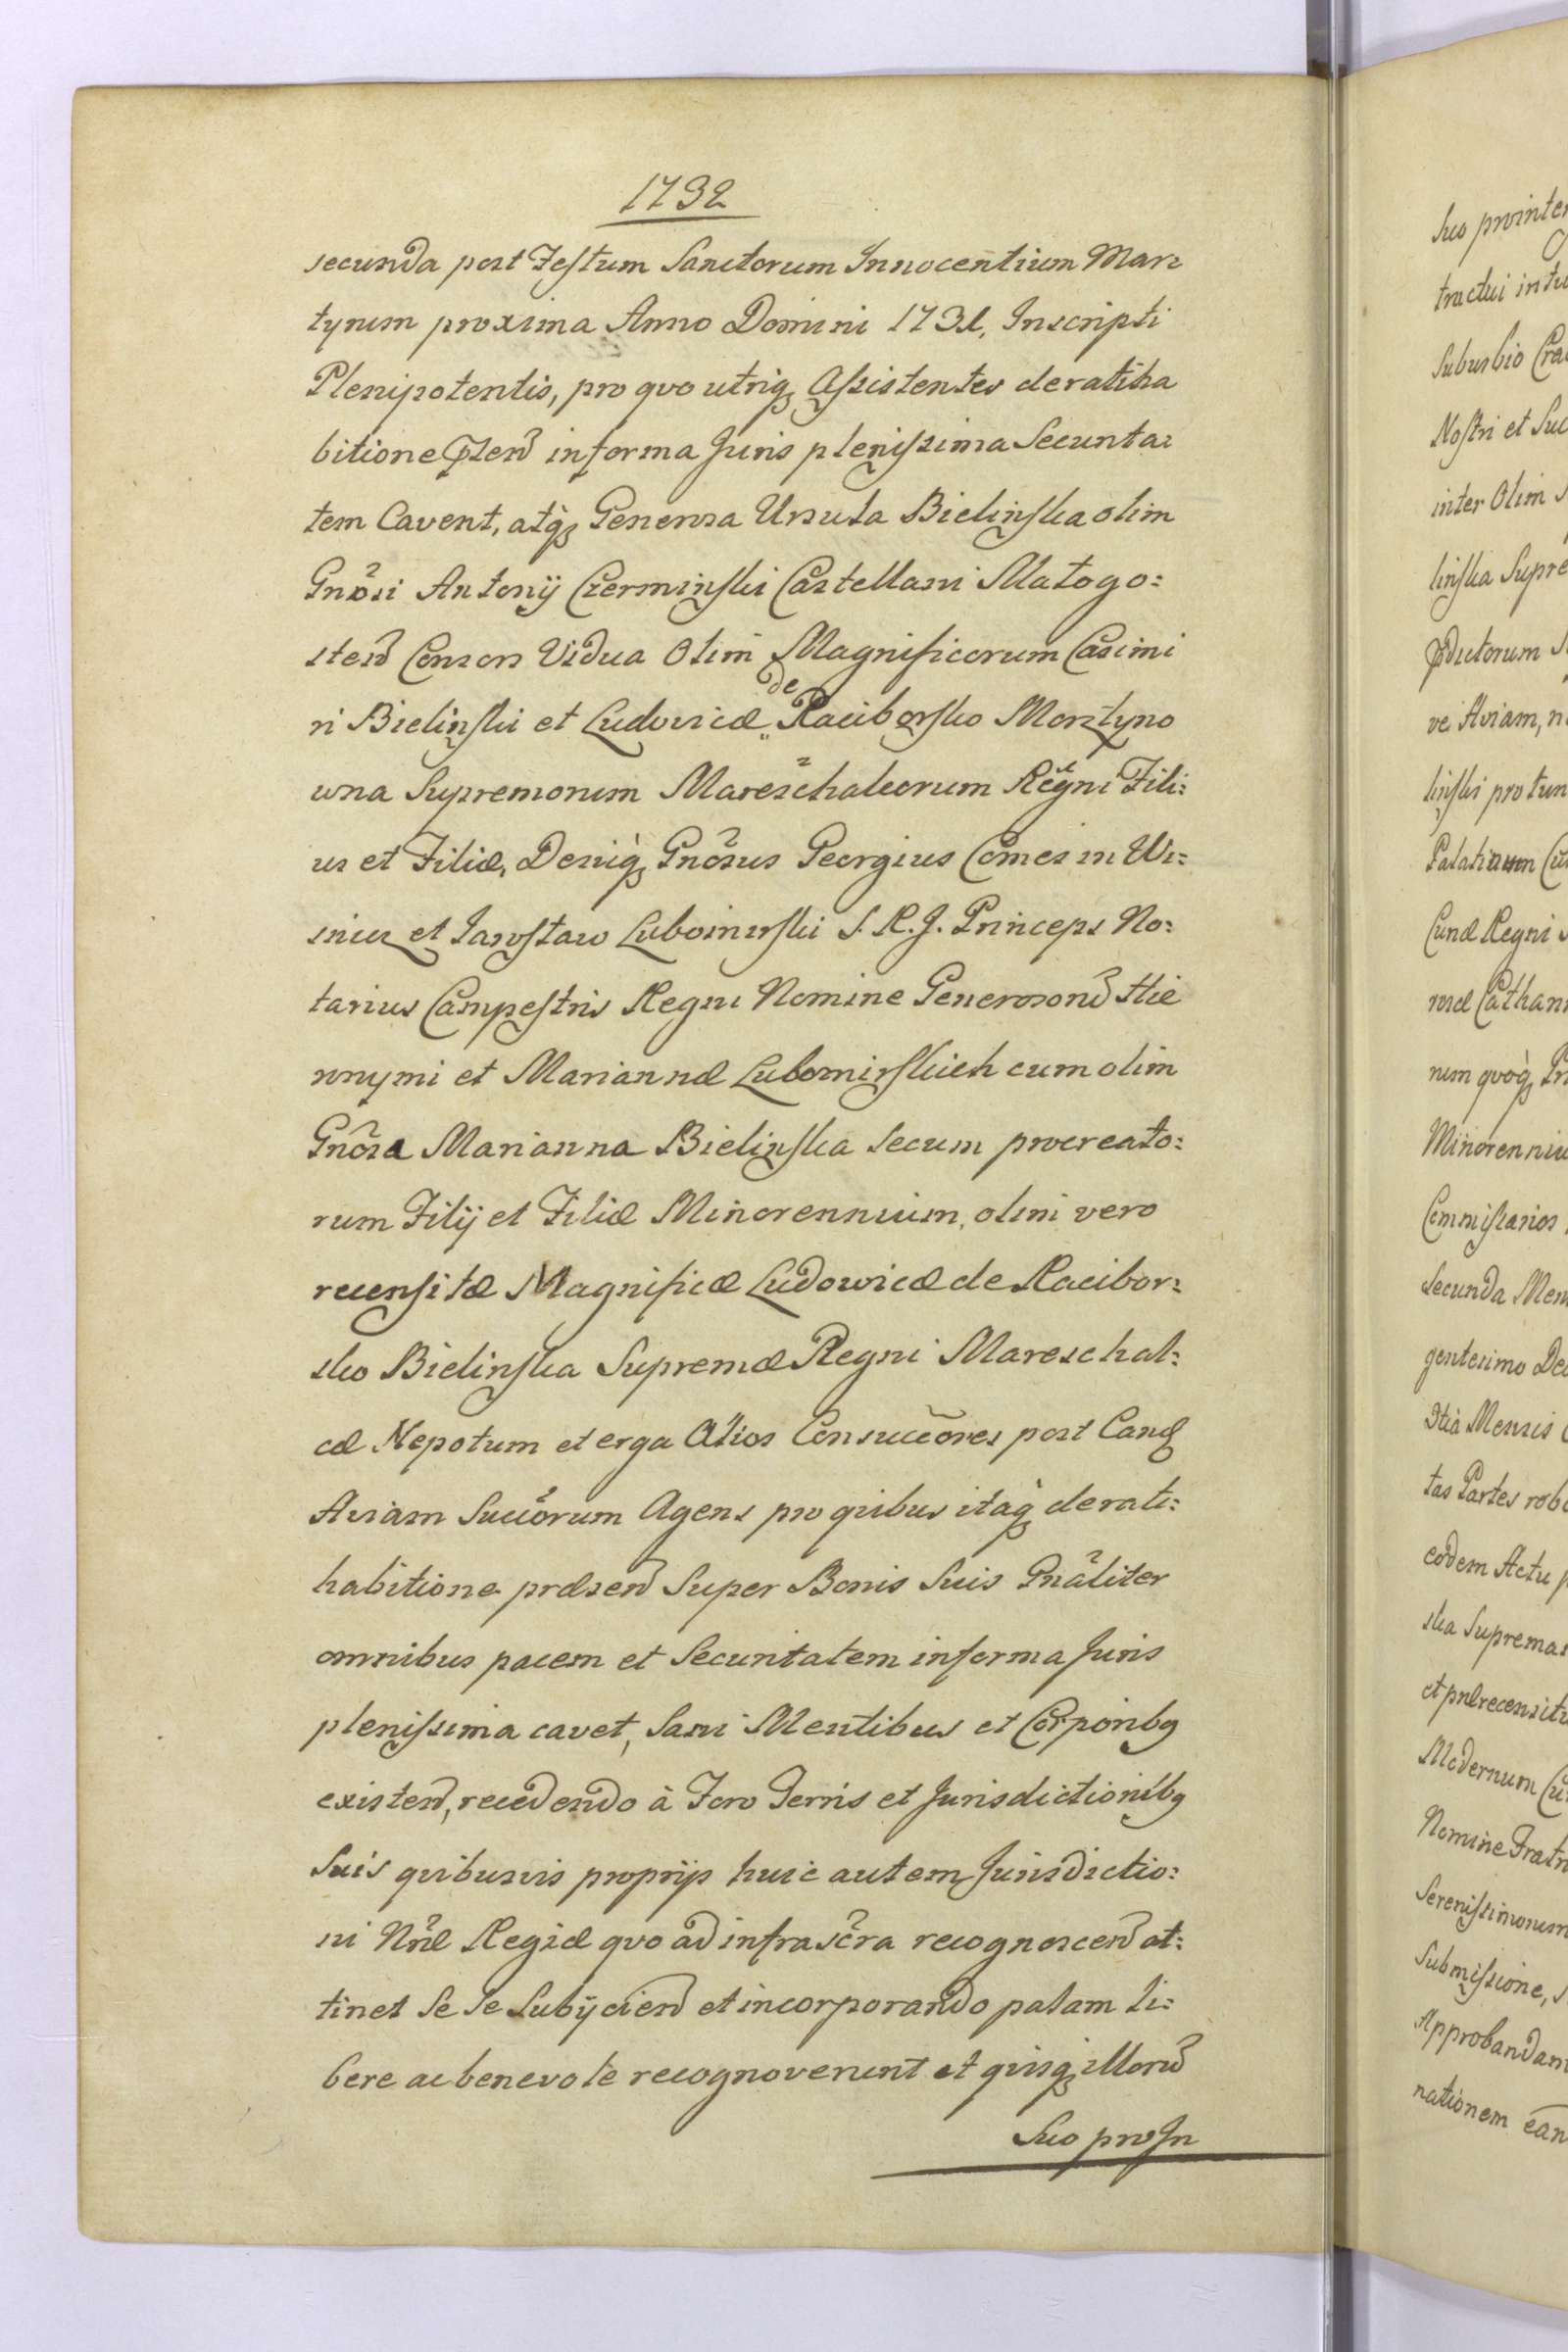 1732
secunda post Festum Sanctorum Innocentium Mar=
tyrum proxima Anno Domini 1731, Inscripti
Plenipotentis, pro quo utriq Assistentes de ratiha
bitione in forma Juris plenissima Securita=
tem Cavent, atq Generosa Ursula Bielinska olim
Gnosi Antonij Czerminski Castellani Małogo=
sten Consors Vidua Olim Magnificorum Casimi
ri Bielinski et Ludovicæ de Raciborsko Morsztyno
wna Supremorum Mareschalcorum Regni Fili=
us et Filiæ, Deniq Gnosus Georgius Comes in Wi=
snicz et Jarosław Lubomirski S. R. J. Princeps No=
tarius Campestris Regni Nomine Generosorum Hie
ronymi et Mariannæ Lubomirskich cum olim
Gnosa Marianna Bielinska secum procreato=
rum Filij et Filiæ Minorennium, olim vero
recensitæ Magnificæ Ludowicæ de Racibor=
sko Bielinska Supremæ Regni Mareschal=
cæ Nepotum et erga Alios Consucceores post Cand
Aviam Succorum Agens pro quibus itaq de rati=
habitione præsen Super Bonis Suis Gnaliter
omnibus pacem et Securitatem in forma Juris
plenissima cavet, Sani Mentibus et Corporibq
existen, recedendo à Foro Terris et Jurisdictionibq
Suis quibusvis proprijs huic autem Jurisdictio=
ni Nræ Regiæ quo ad infrascra recognoscen at=
tinet Se Se Subijcien et incorporando palam li=
bere ac benevole recognoverunt et quisq illorum
Suo pro In
Suo pro inter
tractui intu
Suburbio Cra
Nostri et Suc
inter Olim
linska Supre
ve Aviam, n
linski pro tun
Palatinum Cu
Cunæ Regni
rosæ Cathari
rum quoq Pr
Minorenniu
Commissarios
Secunda Men
gentesimo De
Mensis
tas Partes rob
eodem Actu p
ska Suprema
et prærecensit
Modernum Cu
Nomine Fratr
Serenissimorum
Submissione, s
Approbandam
nationem ean